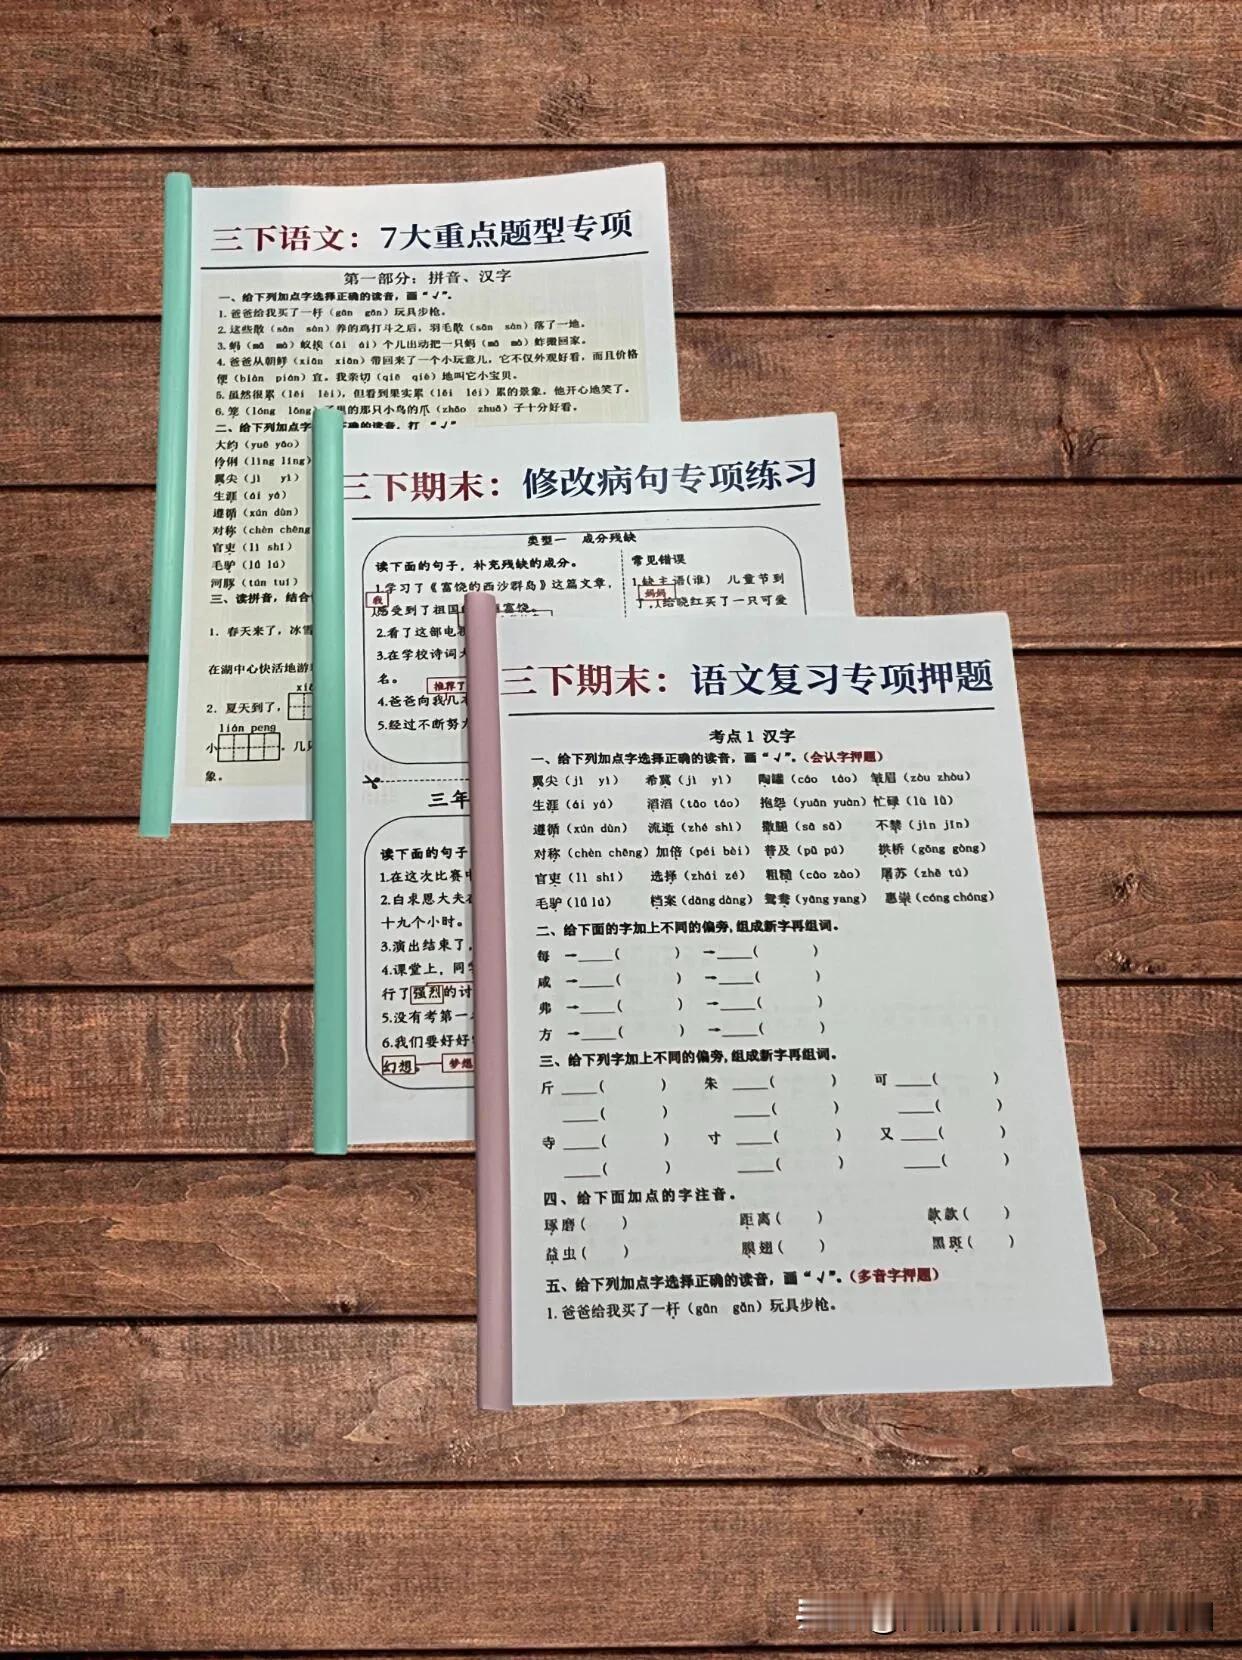 三下语文：7大重点题型专项
第一部分：拼音、汉字
一、给下列加点字选择正确的读音，画“√”。
1. 爸爸给我买了一杆（gān gǎn）玩具步枪。
2. 这些散（sǎn sàn）养的鸡打斗之后，羽毛散（sǎn sàn）落了一地。
3. 蚂（mǎ mà）蚁挨（āi ái）个儿出动把一只蚂（mǎ mà）蚱搬回家。
4. 爸爸从朝鲜（xiān xiǎn）带回来了一个小玩意儿，它不仅外观好看，而且价格
便（biàn pián）宜。我亲切（qiē qiè）地叫它小宝贝。
5. 虽然很累（lěi lèi），但看到果实累（léi lěi）累的景象，他开心地笑了。
6. 笼（lóng lǒng）子里的那只小鸟的爪（zhǎo zhuǎ）子十分好看。
二、给下列加点字 正确的读音，打“√”
大约（yuē yāo）
伶俐（líng lǐng）
翼尖（jì yì）
生涯（ái yá）
遵循（xún dùn）
对称（chèn chēng
官吏（lì shǐ）
毛驴（lǘ lú）
河豚（tún tuí）
三、读拼音，结合
1. 春天来了，冰雪
在湖中心快活地游
2. 夏天到了，
lián peng
小 。几只
象。
三下期末：修改病句专项练习
类型一 成分残缺
读下面的句子，补充残缺的成分。
1.学习了《富饶的西沙群岛》这篇文章，
我
感受到了祖国 富饶。
2.看了这部电
3.在学校诗词大
名。
推荐了
4.爸爸向我几本
5.经过不断努力
常见错误
1.缺主语(谁) 儿童节到
妈妈
了，给晓红买了一只可爱
三年
读下面的句子
1.在这次比赛中
2.白求恩大夫在
十九个小时。
3.演出结束了，
4.课堂上，同学
行了强烈的讨
5.没有考第一
6.我们要好好
幻想。 梦想
三下期末：语文复习专项押题
考点 1 汉字
一、给下列加点字选择正确的读音，画“√”。（会认字押题）
翼尖（jì yì） 希冀（jì yì） 陶罐（cáo táo） 皱眉（zòu zhòu）
生涯（ái yá） 滔滔（tāo táo） 抱怨（yuān yuàn） 忙碌（lù lǜ）
遵循（xún dùn） 流逝（zhé shì） 撒腿（sā sǎ） 不禁（jìn jīn）
对称（chèn chēng） 加倍（péi bèi） 普及（pǔ pú） 拱桥（gǒng gòng）
官吏（lì shǐ） 选择（zhái zé） 粗糙（cāo zào） 屠苏（zhě tú）
毛驴（lǘ lú） 档案（dǎng dàng） 鸳鸯（yāng yang） 惠崇（cóng chóng）
二、给下面的字加上不同的偏旁，组成新字再组词。
每 →____（ ） →____（ ）
咸 →____（ ） →____（ ）
弗 →____（ ） →____（ ）
方 →____（ ） →____（ ）
三、给下列字加上不同的偏旁，组成新字再组词。
斤 ____（ ） 朱 ____（ ） 可 ____（ ）
____（ ） ____（ ） ____（ ）
寺 ____（ ） 寸 ____（ ） 又 ____（ ）
____（ ） ____（ ） ____（ ）
四、给下面加点的字注音。
琢磨（ ） 距离（ ） 款款（ ）
益虫（ ） 膜翅（ ） 黑斑（ ）
五、给下列加点字选择正确的读音，画“√”。（多音字押题）
1. 爸爸给我买了一杆（gān gǎn）玩具步枪。